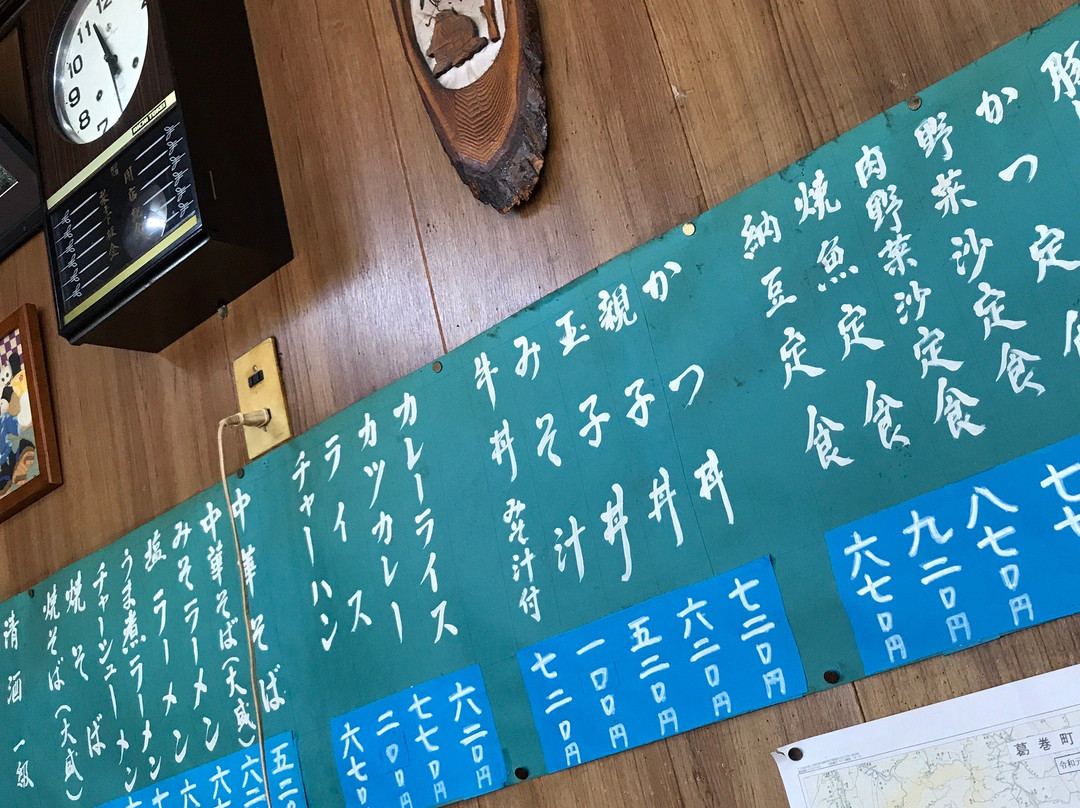 かつ定食
野菜沙定食
肉野菜沙定食
焼魚定食
納豆定食
八七〇円
九二〇円
六七〇円
かつ丼
親子丼
玉子丼
みそ汁
牛丼 みそ汁付
七二〇円
六二〇円
五二〇円
一〇〇円
七二〇円
カレーライス
カツカレー
ライス
チャーハン
六二〇円
七七〇円
二〇〇円
六七〇
中華そば
中華そば(大盛)
みそラーメン
塩ラーメン
うま煮ラーメン
チャーシューメン
焼そば
焼そば(大盛)
清酒 一級
五二
六二
12
11
10
9
8
7
葛巻町
令和元